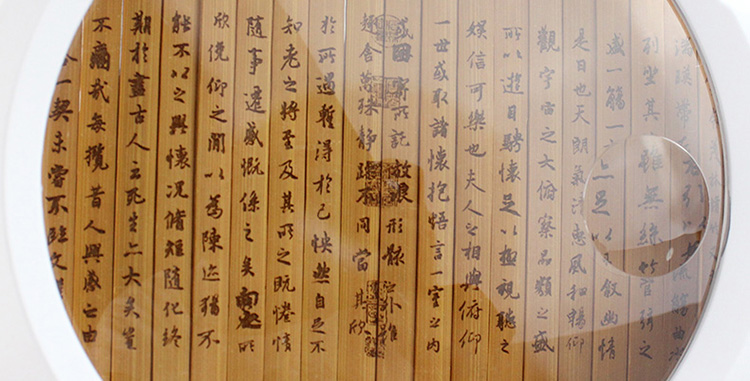 湍暎帶左右引以為流觴曲水
列坐其次雖無絲竹管弦之
盛一觴一 足以 叙幽情
是日也天朗氣清惠風和暢仰
觀宇宙之大俯察品類之盛
所以遊目騁懷足以極視聽之
娛信可樂也夫人之相與俯仰
一世或取諸懷抱悟言一室之內
或因寄所託放浪形骸之外雖
趣舍萬殊靜躁不同當其欣
於所遇暫得於己怏然自足不
知老之將至及其所之既惓情
隨事遷感慨係之矣向之所
欣俛仰之閒以為陳迹猶不
能不以之興懷況脩短隨化終
期於盡古人云死生亦大矣豈
不痛哉每攬昔人興感之由
合一契未嘗不臨文